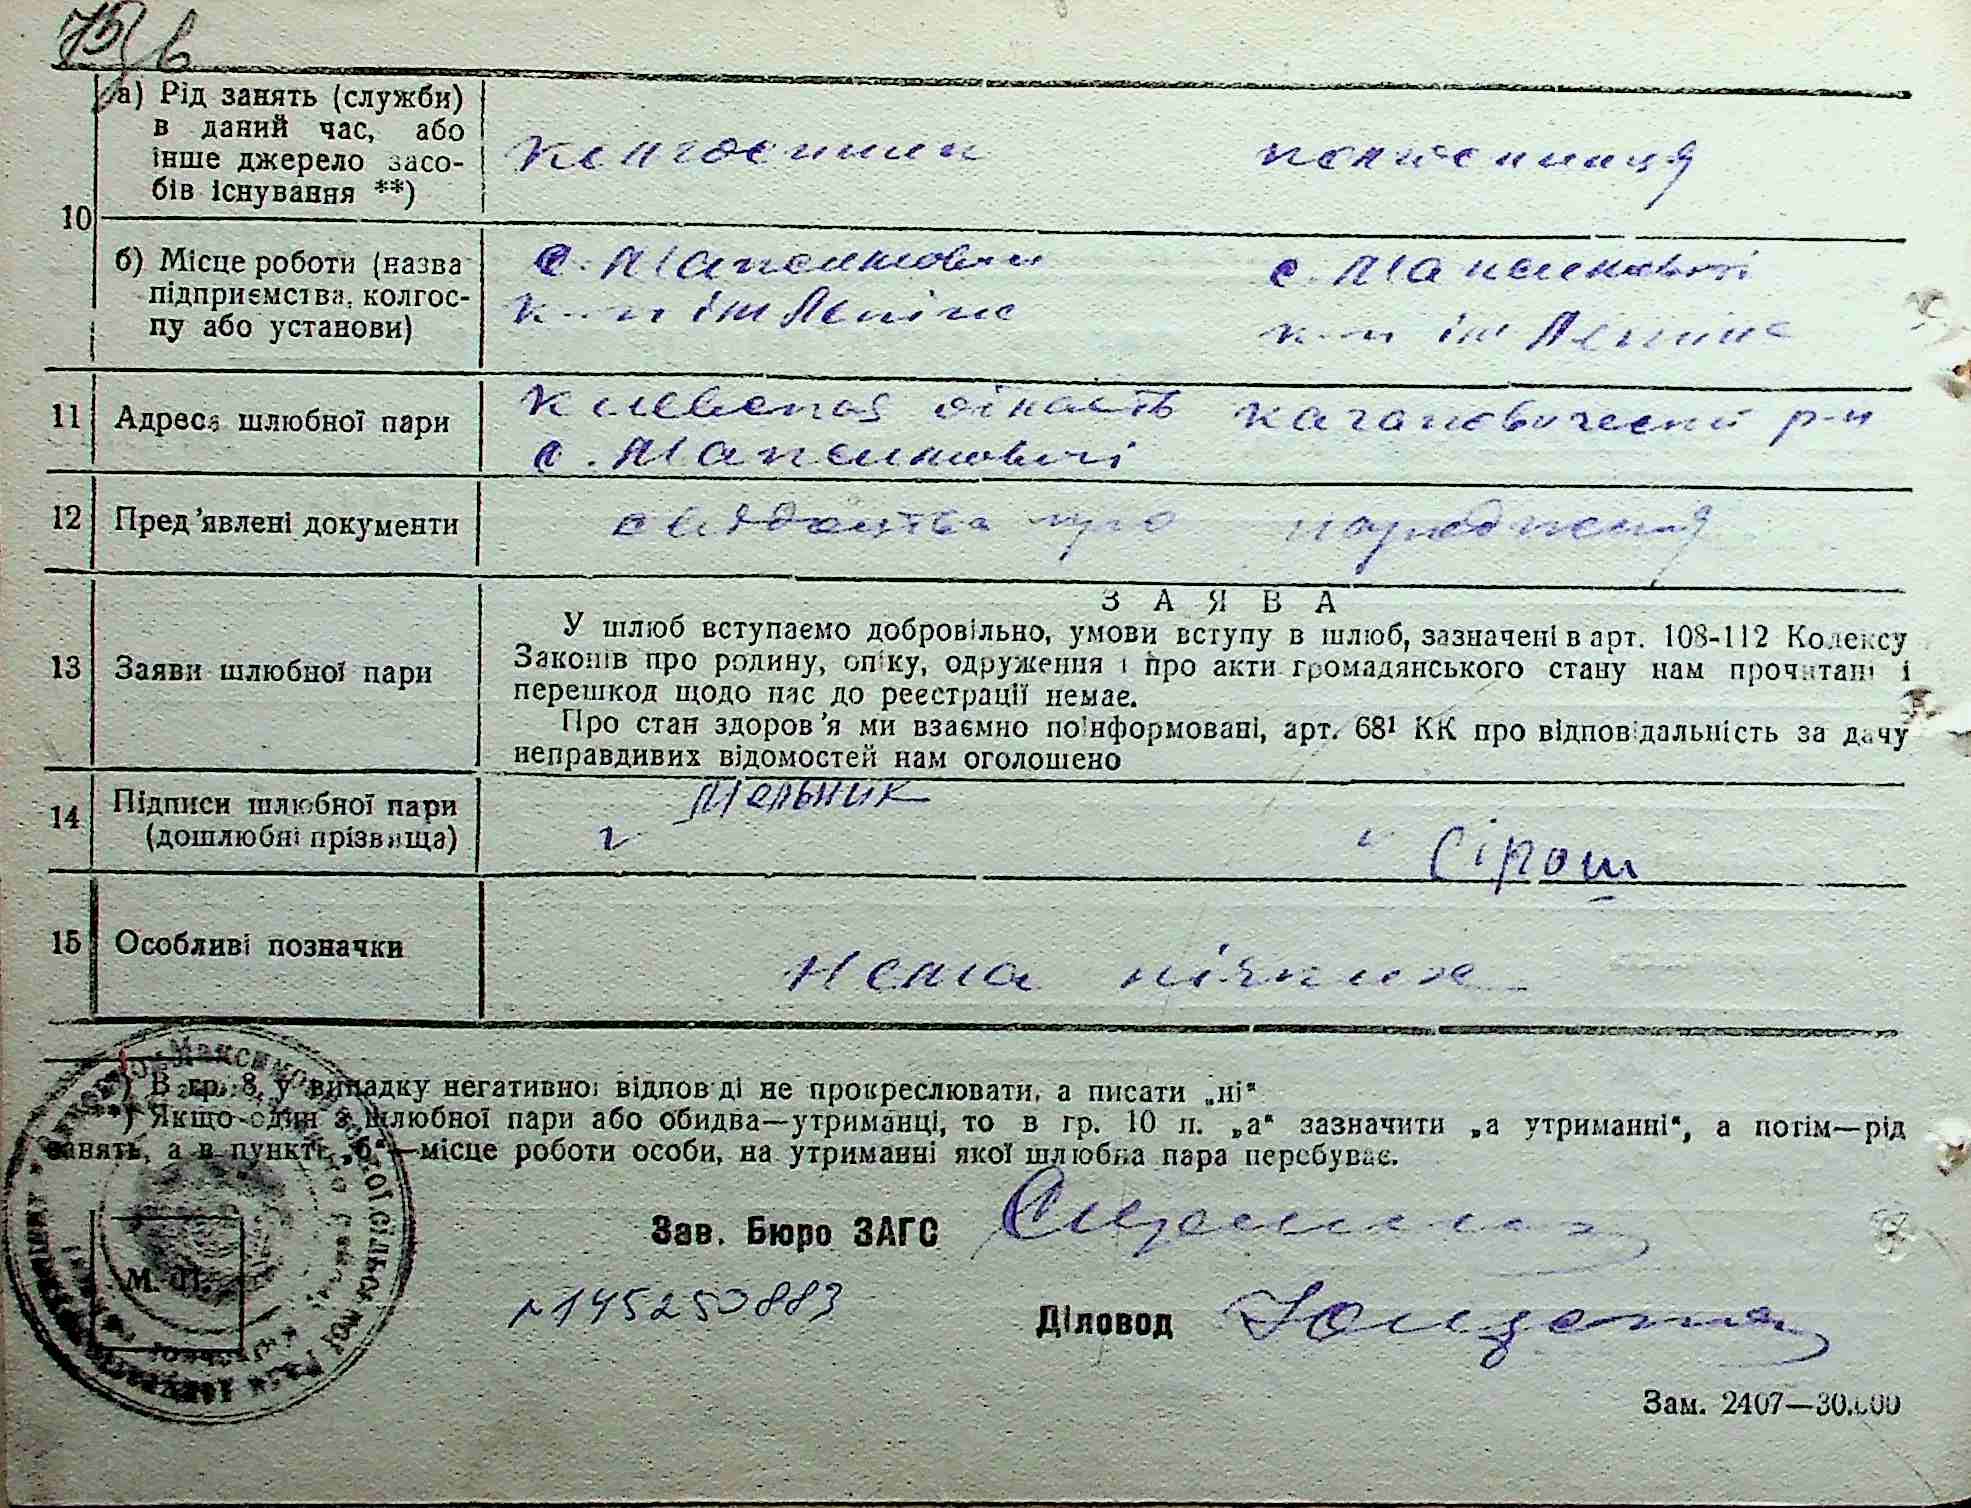 75 в
10
а) Рід занять (служби)
в даний час, або
інше джерело засо-
бів існування **)
колгоспник колгоспниця
б) Місце роботи (назва
підприємства, колгос-
пу або установи)
с. Максимовичі с. Максимовичі
к-п ім Леніна к-п ім Леніна
11 Адреса шлюбної пари
Киевская область Кагановический р-н
с. Максимовичі
12 Пред'явлені документи
свидоцтва про народження
13 Заяви шлюбної пари
ЗАЯВА
У шлюб вступаємо добровільно, умови вступу в шлюб, зазначені в арт. 108-112 Кодексу
Законів про родину, опіку, одруження і про акти громадянського стану нам прочитані і
перешкод щодо нас до реєстрації немає.
Про стан здоров'я ми взаємно поінформовані, арт. 68¹ КК про відповідальність за дачу
неправдивих відомостей нам оголошено
14 Підписи шлюбної пари
(дошлюбні прізвища)
Мельник
Сірош
15 Особливі позначки
Нема ніяких
*) В гр. 8, у випадку негативної відповіді не прокреслювати, а писати „ні“
**) Якщо один з шлюбної пари або обидва—утриманці, то в гр. 10 п. „а“ зазначити „а утриманні“, а потім—рід
занять, а в пункті „б“—місце роботи особи, на утриманні якої шлюбна пара перебуває.
Зав. Бюро ЗАГС
М. П.
№145250883
Діловод
Зам. 2407—30.000